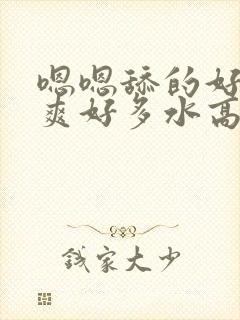 嗯嗯舔的好
爽好多水高
钱家大少